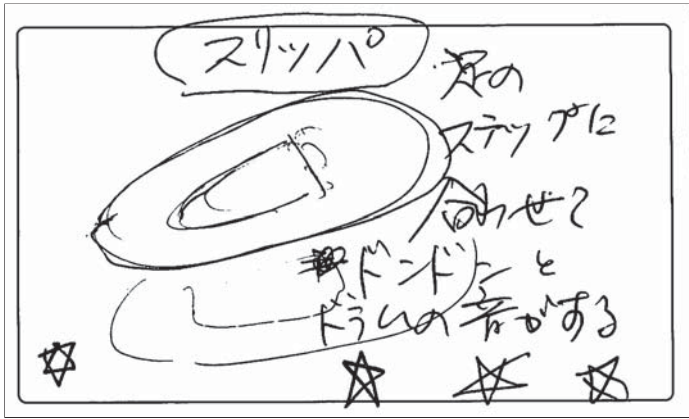 スリッパ
足の
ステップに
合わせて
ドンドンと
ドラムの音がする